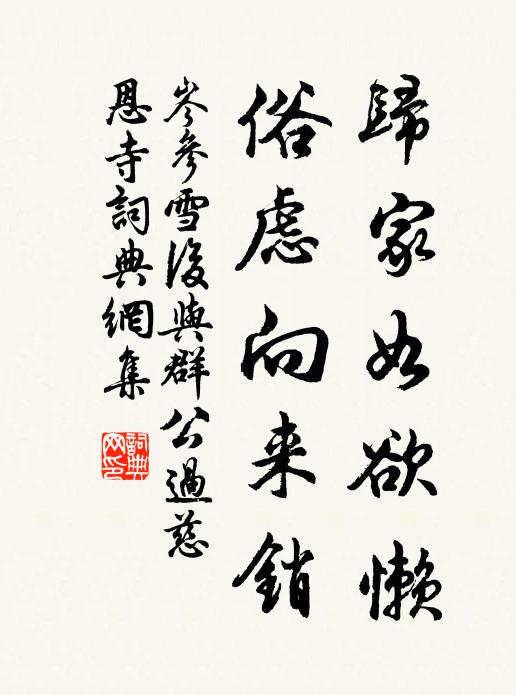 歸家如欲懒
俗慮向来銷
岑參雪後與群公過慈
恩寺詞典網集
詞典网印